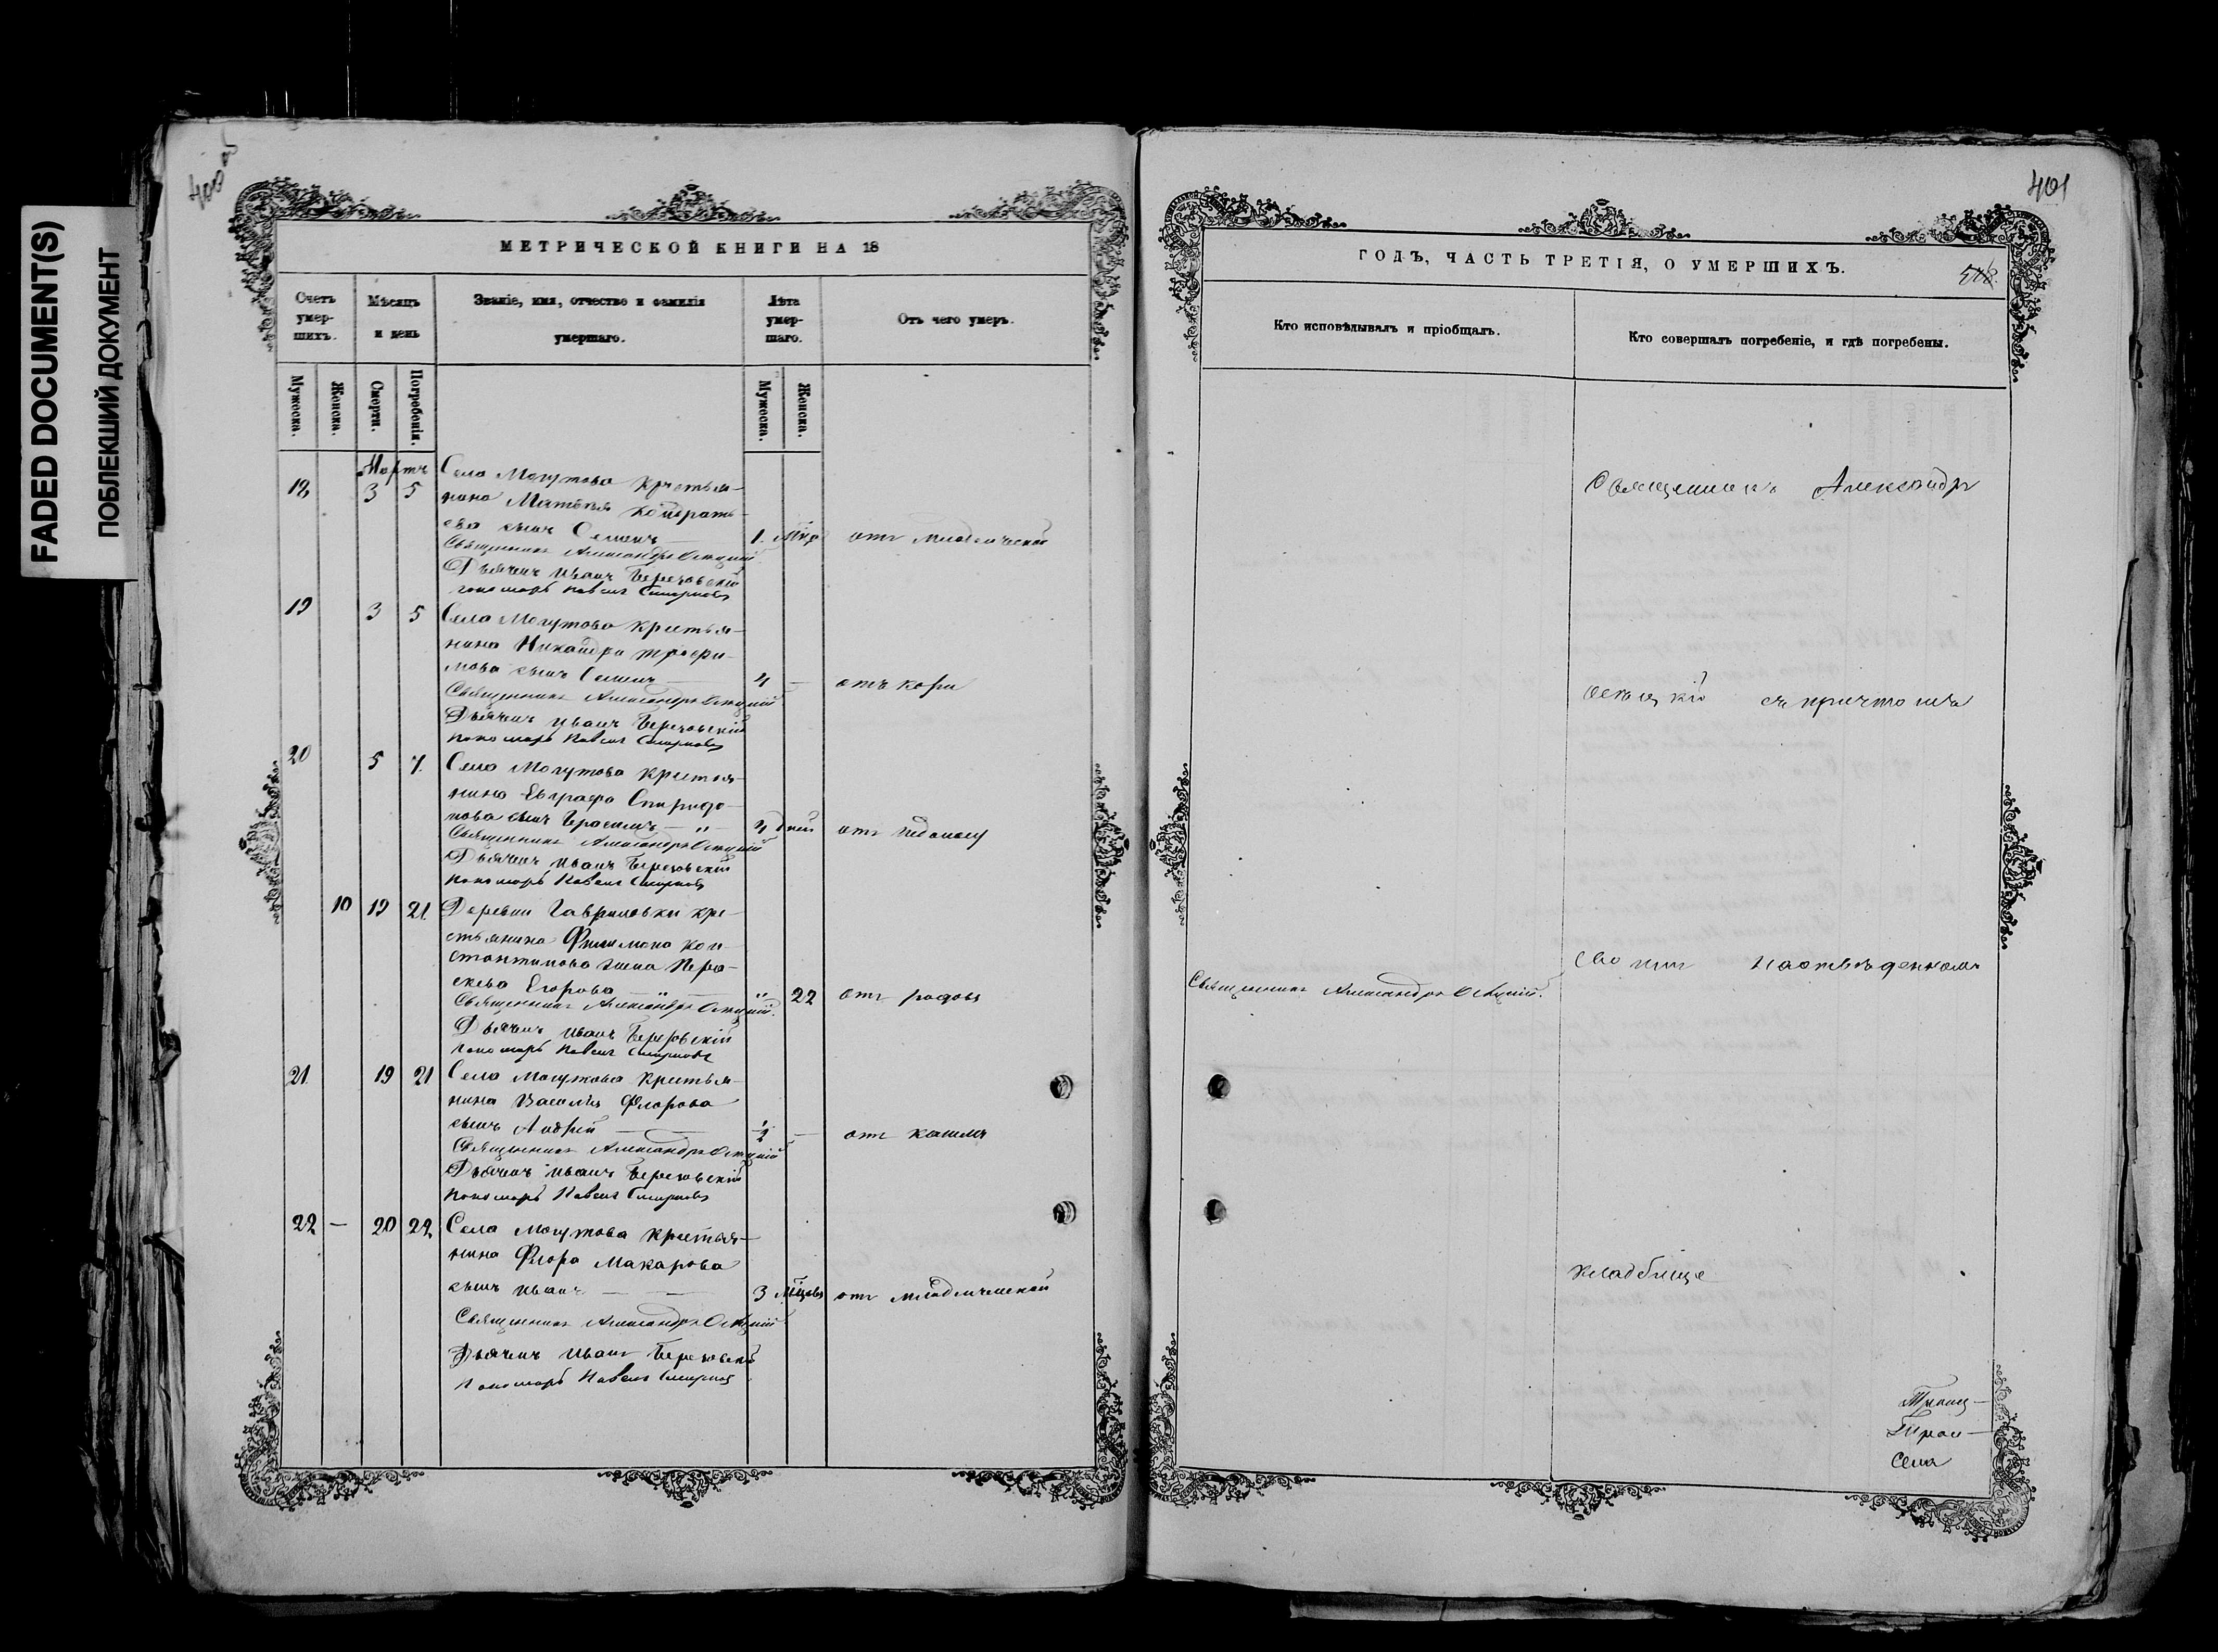 FADED DOCUMENT(S)
ПОБЛЕКШИЙ ДОКУМЕНТ
400 об
МЕТРИЧЕСКОЙ КНИГИ НА 18
Счетъ умер-шихъ.
Мѣсяцъ и день
Званіе, имя, отчество и фамилія умершаго.
Лѣта умер-шаго.
Отъ чего умеръ.
Мужеска.
Женска.
Смерти.
Погребенія.
Мужеска.
Женска.
Мартъ
18 3 5 Села Могутова крестья-
нина Матвѣя Кондрать-
ева сынъ Семенъ 1. Мѣс отъ младенческой
Священникъ Александръ
Дьячекъ Иванъ Березовскій
Пономарь Павелъ Смирновъ
19 3 5 Села Могутова крестья-
нина Никандра Трофи-
мова сынъ Семенъ — 4 — отъ кори
Священникъ Александръ
Дьячекъ Иванъ Березовскій
Пономарь Павелъ Смирновъ
20 5 7. Села Могутова крестья-
нина Евграфа Спиридо-
нова сынъ Герасимъ — " — 4 дней отъ
Священникъ Александръ
Дьячекъ Иванъ Березовскій
Пономарь Павелъ Смирновъ
10 19 21 Деревни Гавриловки кре-
стьянина Филимона Кон-
стантинова жена Пара-
скева Егорова — " — " 22 отъ родовъ
Священникъ Александръ
Дьячекъ Иванъ Березовскій
Пономарь Павелъ Смирновъ
21 19 21 Села Могутова крестья-
нина Василія Флорова
сынъ Андрей — — ½ — отъ кашля
Священникъ Александръ
Дьячекъ Иванъ Березовскій
Пономарь Павелъ Смирновъ
22 — 20 22 Села Могутова крестья-
нина Флора Макарова
сынъ Иванъ — — 3 мѣсцовъ отъ младенческой
Священникъ Александръ
Дьячекъ Иванъ Березовскій
Пономарь Павелъ Смирновъ
401
ГОДЪ, ЧАСТЬ ТРЕТІЯ, О УМЕРШИХЪ.
Кто исповѣдывалъ и пріобщалъ.
Кто совершалъ погребеніе, и гдѣ погребены.
Священникъ Александръ
съ причтомъ
Священникъ Александръ
кладбище
Села